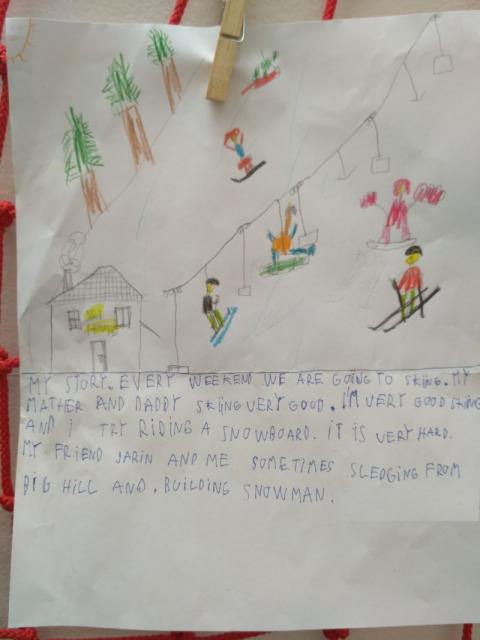 MY STORY. EVERY WEEKEND WE ARE GOING TO SKIING. MY
MATHER AND DADDY SKIING VERY GOOD. I'M VERY GOOD SKIING
AND I TRY RIDING A SNOWBOARD. IT IS VERY HARD.
MY FRIEND JARIN AND ME SOMETIMES SLEDGING FROM
BIG HILL AND. BUILDING SNOWMAN.